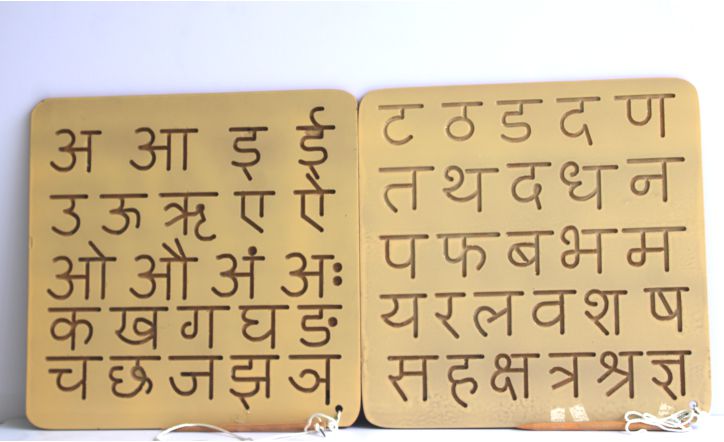 अ आ इ ई
उ ऊ ऋ ए ऐ
ओ औ अं अः
क ख ग घ ङ
च छ ज झ ञ
ट ठ ड द ण
त थ द ध न
प फ ब भ म
य र ल व श ष
स ह क्ष त्र श्र ज्ञ